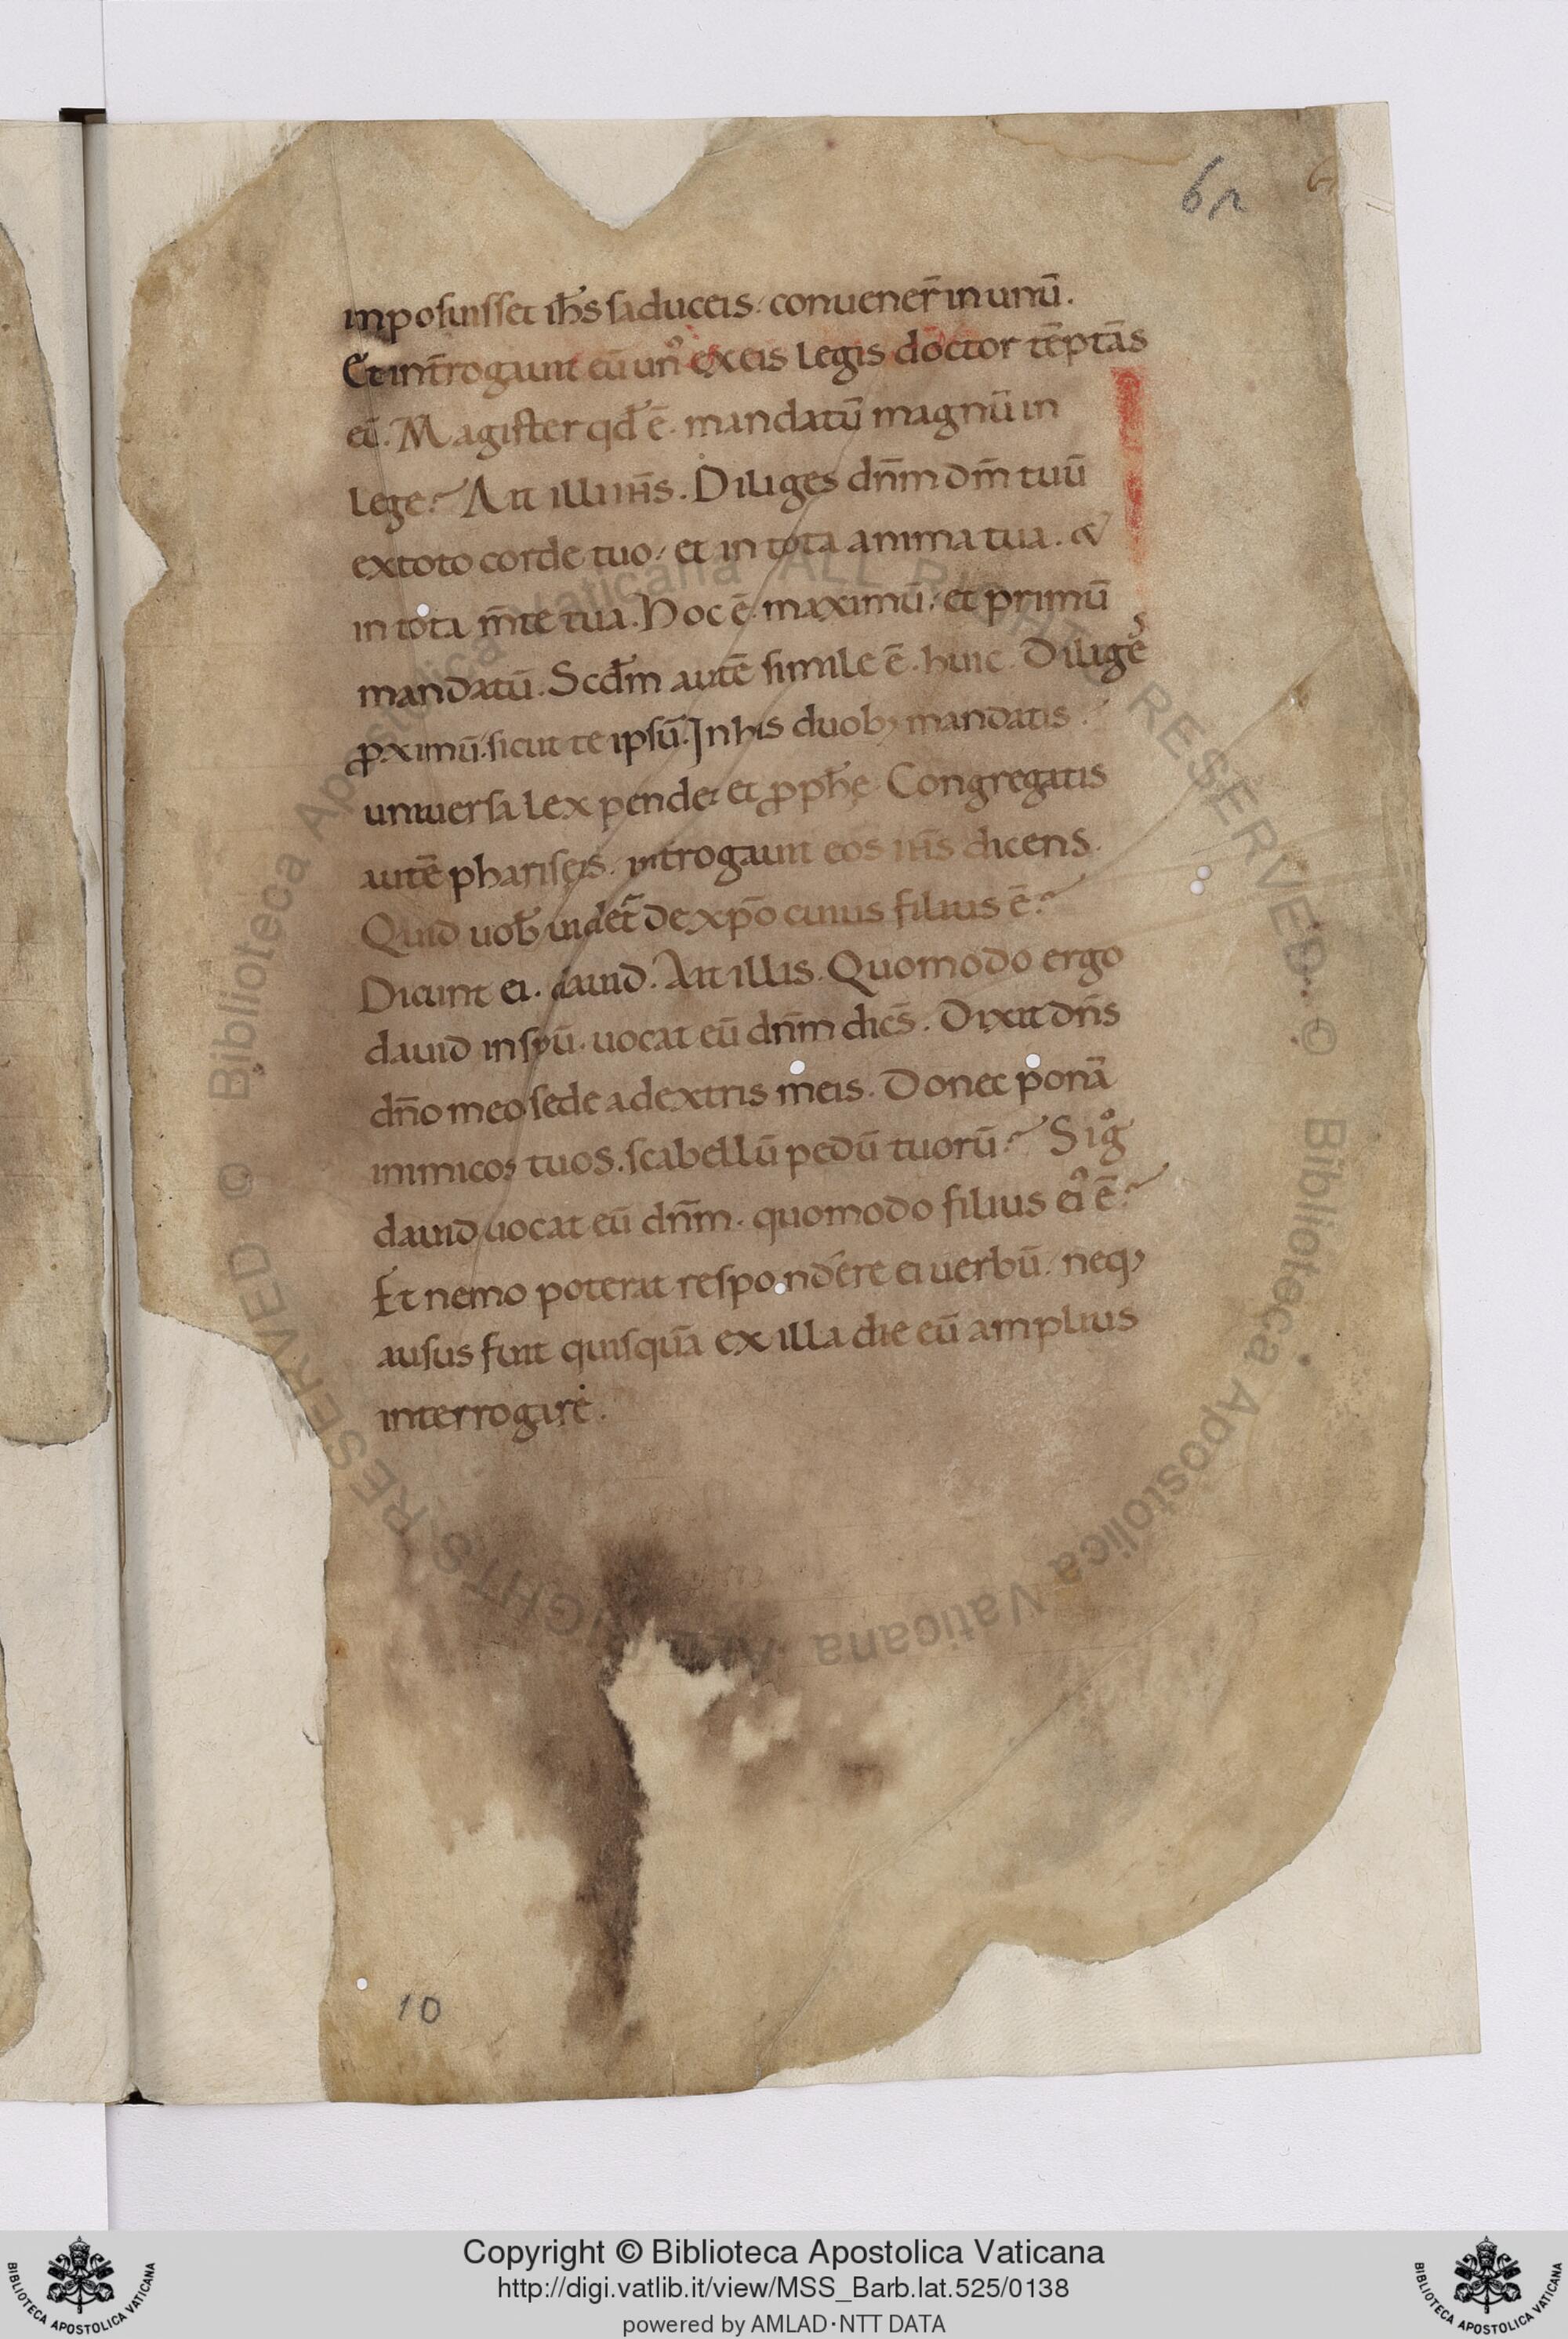 6r 6
inposuisset ih̄s saduceis. conuener̄ in unū.
Et int̄rogauit eū un᷒ ex eis legis doctor tēptās
eū. Magister qd̄ ē. mandatū magnū in
lege? Ait illi ih̄s. Diliges dn̄m dm̄ tuū
ex toto corde tuo. et in tota anima tua. &
in tota m̄te tua. Hoc ē. maximū. et primū
mandatū. Scd̄m autē simile ē. huic. Diliges
ꝓximū. sicut te ipsū. In his duob; mandatis.
uniuersa lex pendet et ꝓph̄e. Congregatis
autē phariseis. int̄rogauit eos ih̄s dicens.
Quid uob̄ uidet̄ de xp̄o cuius filius ē?
Dicunt ei. dauid. Ait illis. Quomodo ergo
dauid in sp̄ū. uocat eū dn̄m dicēs. Dixit dn̄s
dn̄o meo sede a dextris meis. Donec ponā
inimicos tuos. scabellū pedū tuorū? Si gͦ
dauid uocat eū dn̄m. quomodo filius ei᷒ ē?
Et nemo poterat respondere ei uerbū. neq;
ausus fuit quisquā ex illa die eū amplius
interrogare.
10
© Biblioteca Apostolica Vaticana ALL RIGHTS RESERVED © Biblioteca Apostolica Vaticana ALL RIGHTS RESERVED
BIBLIOTECA APOSTOLICA VATICANA
Copyright © Biblioteca Apostolica Vaticana
http://digi.vatlib.it/view/MSS_Barb.lat.525/0138
powered by AMLAD·NTT DATA
BIBLIOTECA APOSTOLICA VATICANA